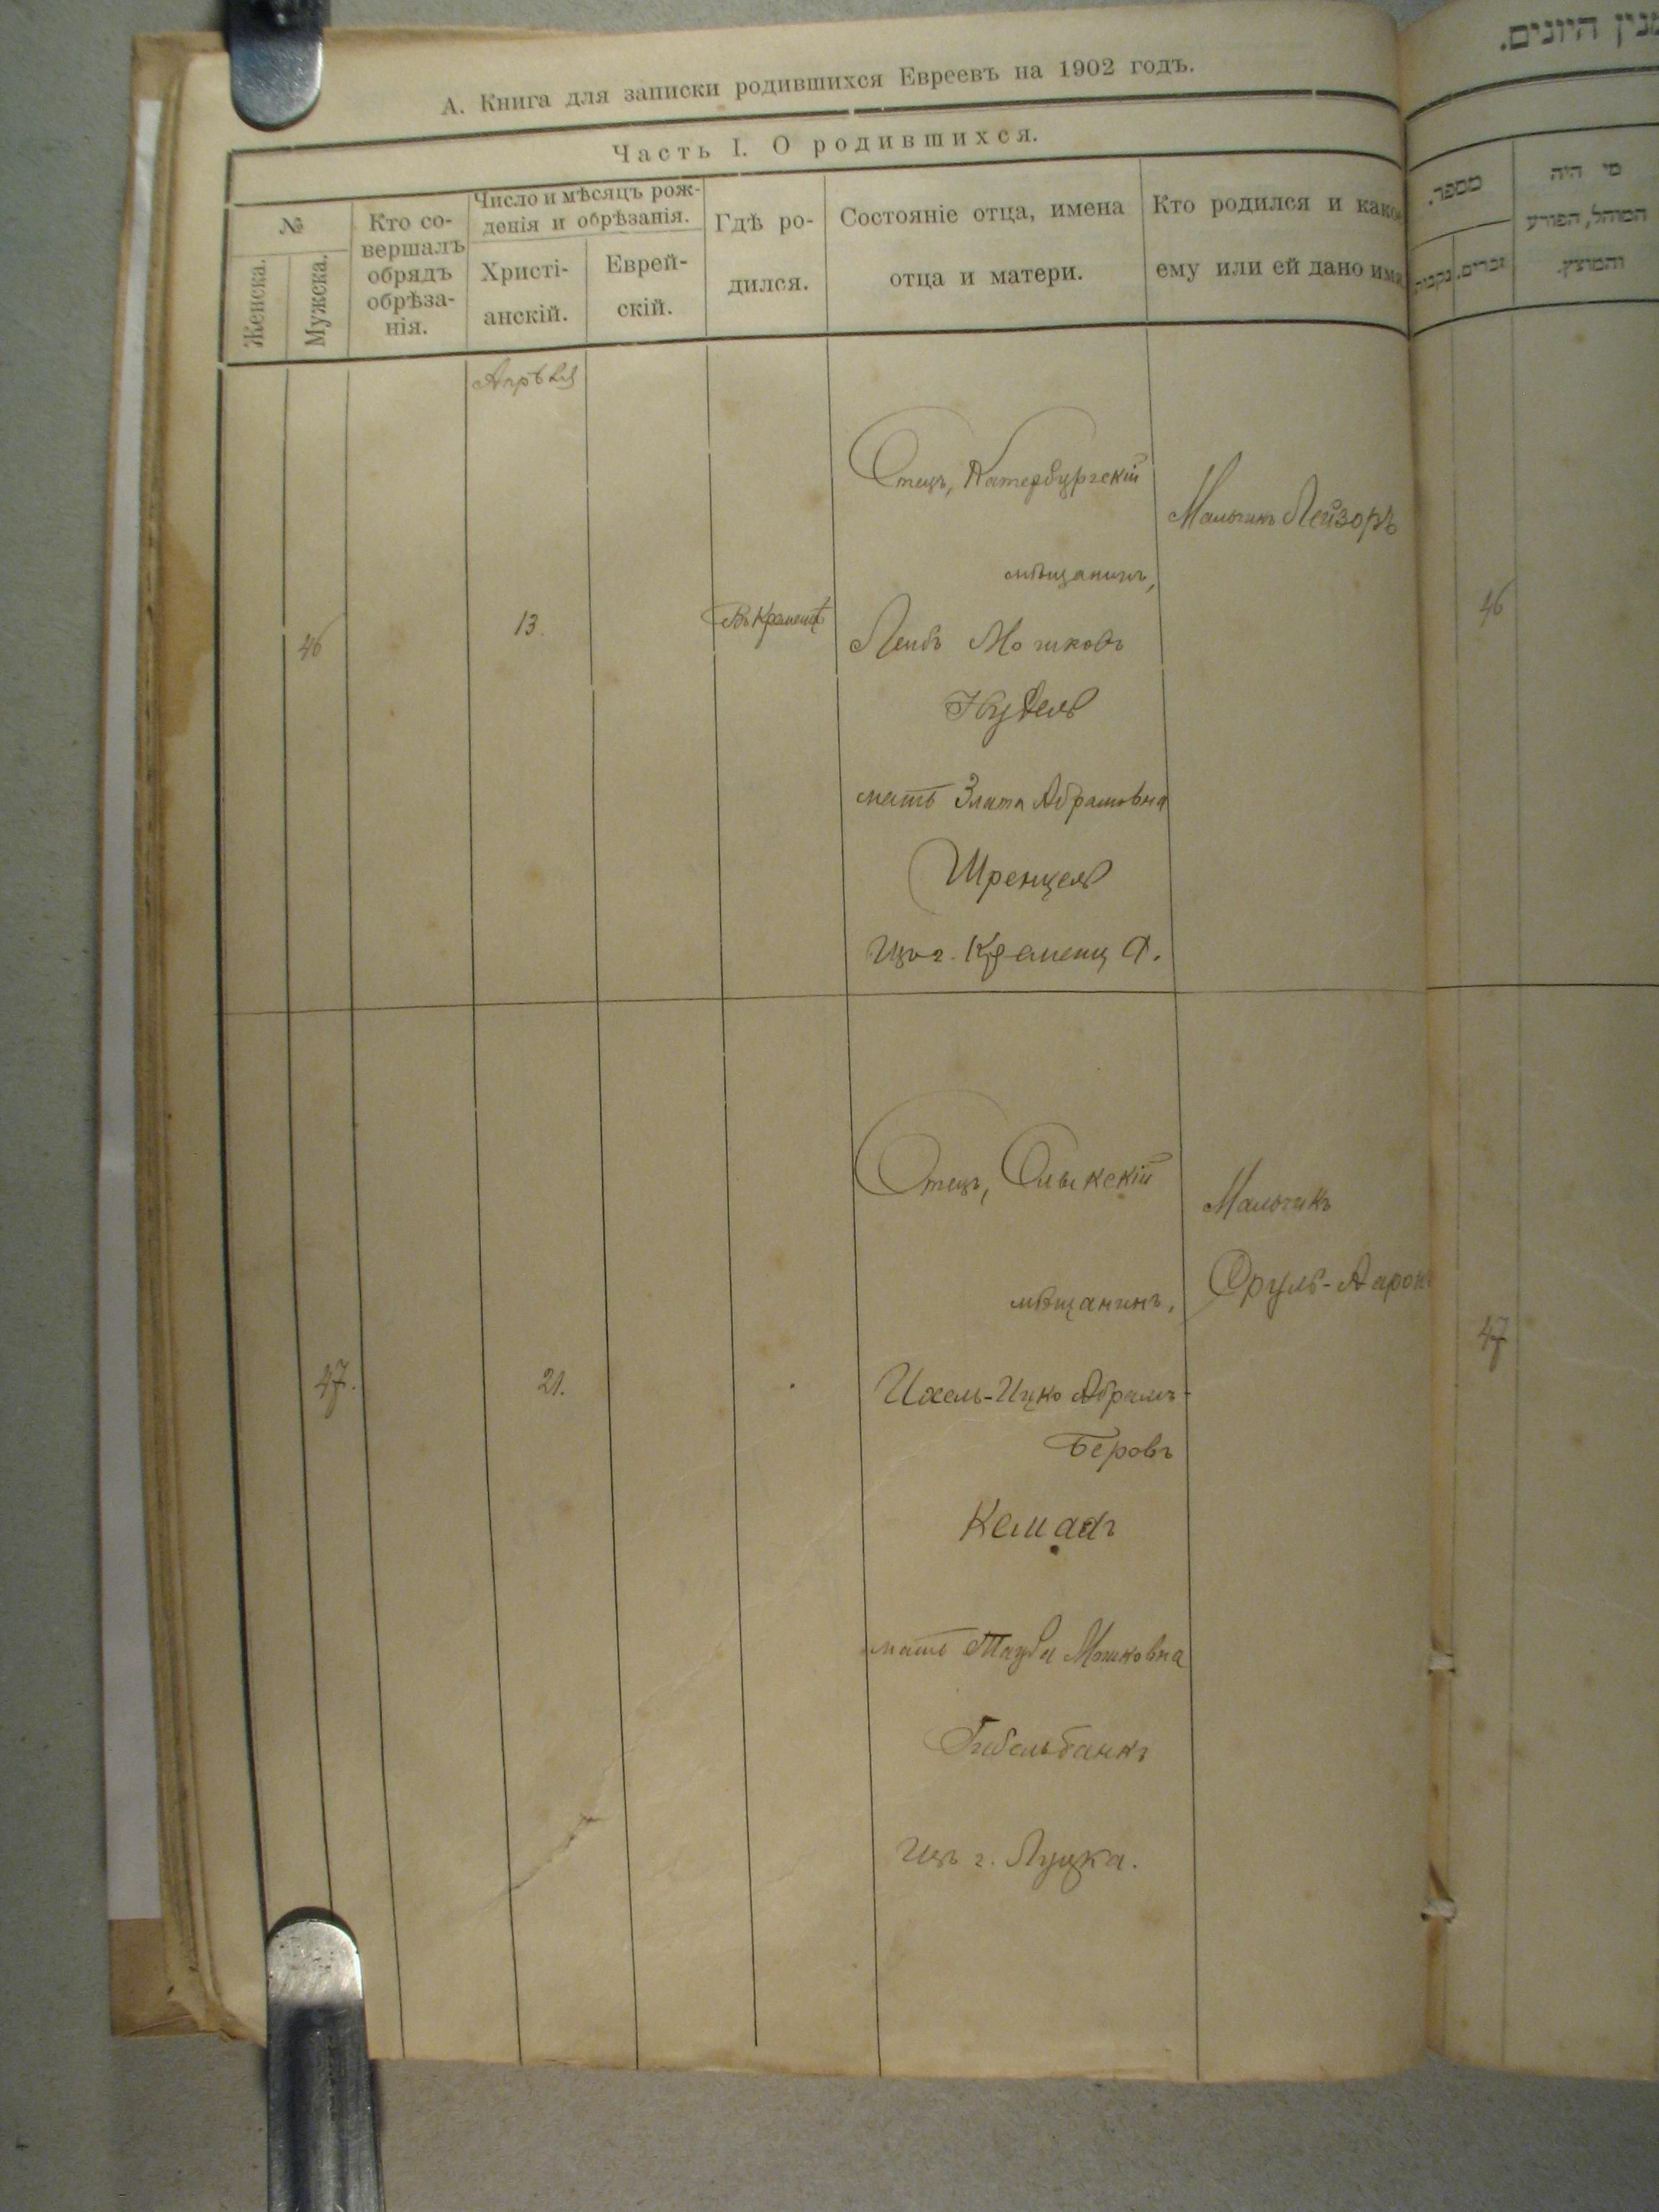 А. Книга для записки родившихся Евреевъ на 1902 годъ.
Часть I. О родившихся.
№
Женска.
Мужска.
Кто со-
вершалъ
обрядъ
обрѣза-
нія.
Число и мѣсяцъ рож-
денія и обрѣзанія.
Христі-
анскій.
Еврей-
скій.
Гдѣ ро-
дился.
Состояніе отца, имена
отца и матери.
Кто родился и како
ему или ей дано имя
מנין היונים.
מספר.
זכרים.
נקבות
מי היה
המוהל, הפורע
והמוצץ.
Апрѣля
46
13.
Въ Кременцѣ
Отецъ, Катербургскій
мѣщанинъ,
Лейбъ Мошковъ
Нудель
мать Злата Абрамовна
Шренцель
Изъ г. Кременца.
Мальчикъ Лейзоръ
46
47.
21.
Отецъ, Олыкскій
мѣщанинъ,
Ихель-Ицко Абрамъ-
Беровъ
мать Тауба Мошковна
Гибельбанкъ
Изъ г. Луцка.
Мальчикъ
Сруль-Ааронъ
47